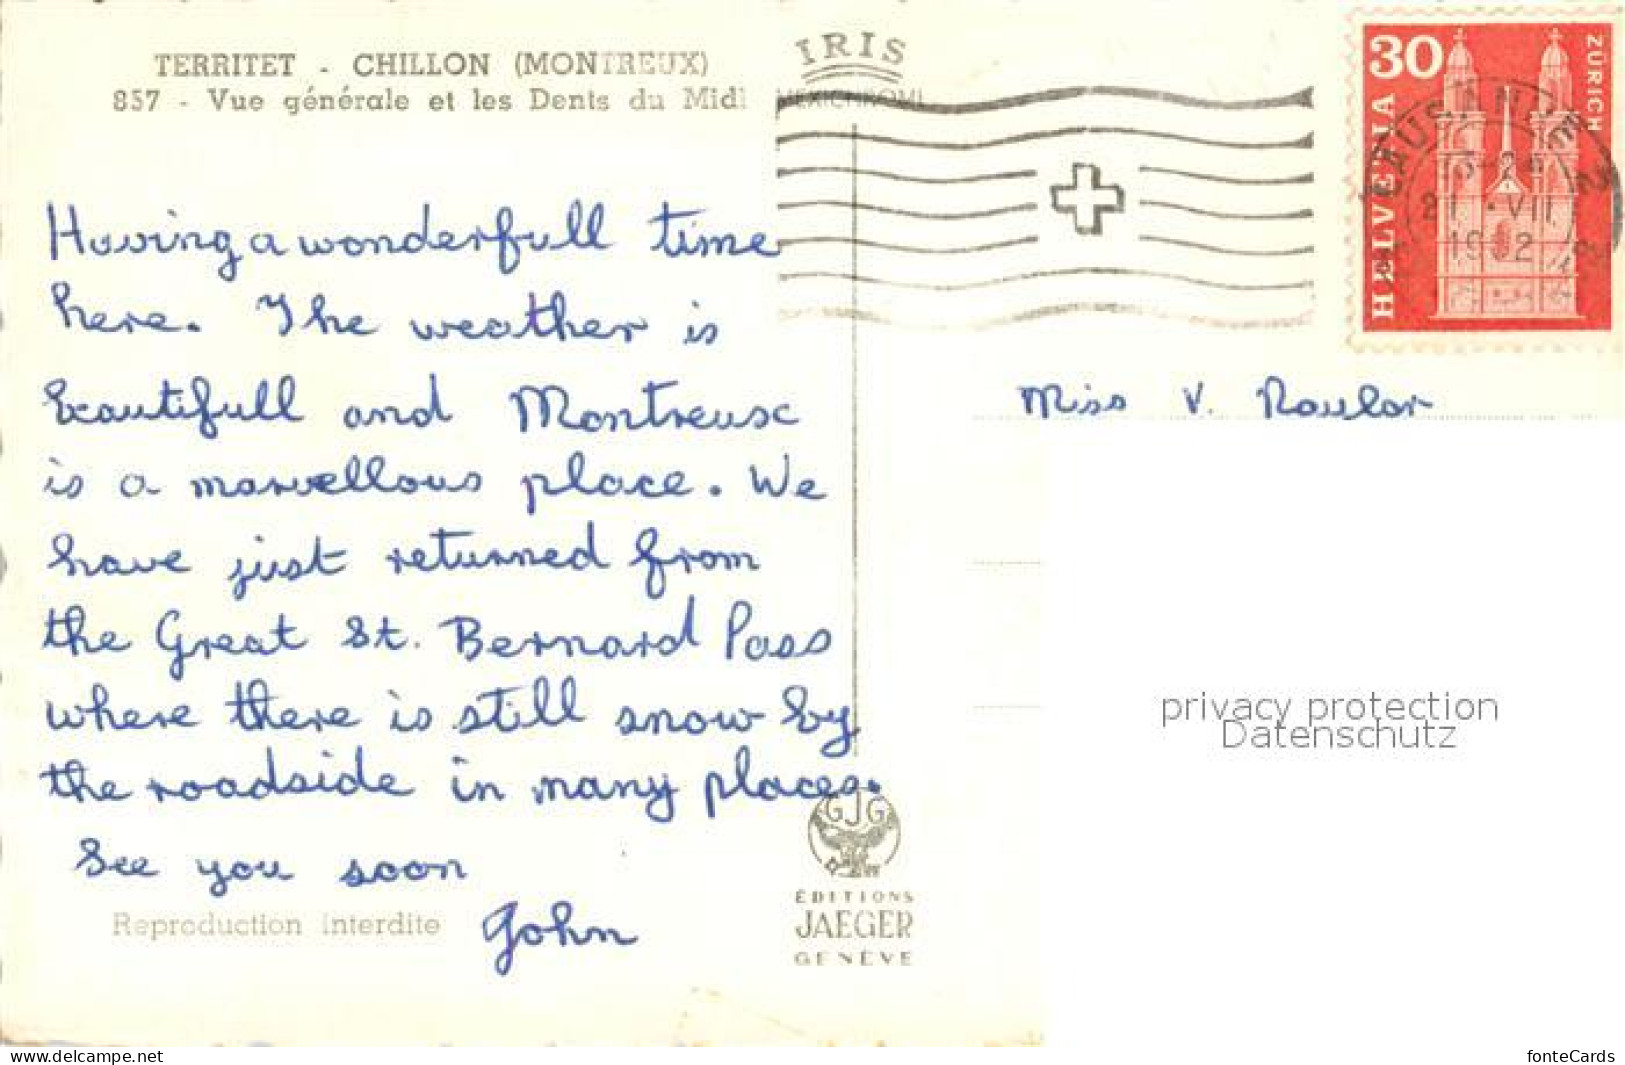 TERRITET - CHILLON (MONTREUX)
857 - Vue générale et les Dents du Midi
IRIS
MEXICHROME
30
ZÜRICH
HELVETIA
LAUSANNE 2
21.VII
1962
Having a wonderfull time
here. The weather is
beautifull and Montreux
is a marvellous place. We
have just returned from
the Great St. Bernard Pass
where there is still snow by
the roadside in many places.
See you soon
John
Miss V.
privacy protection
Datenschutz
GJG
ÉDITIONS
JAEGER
GENÈVE
Reproduction interdite
www.delcampe.net
fonteCards